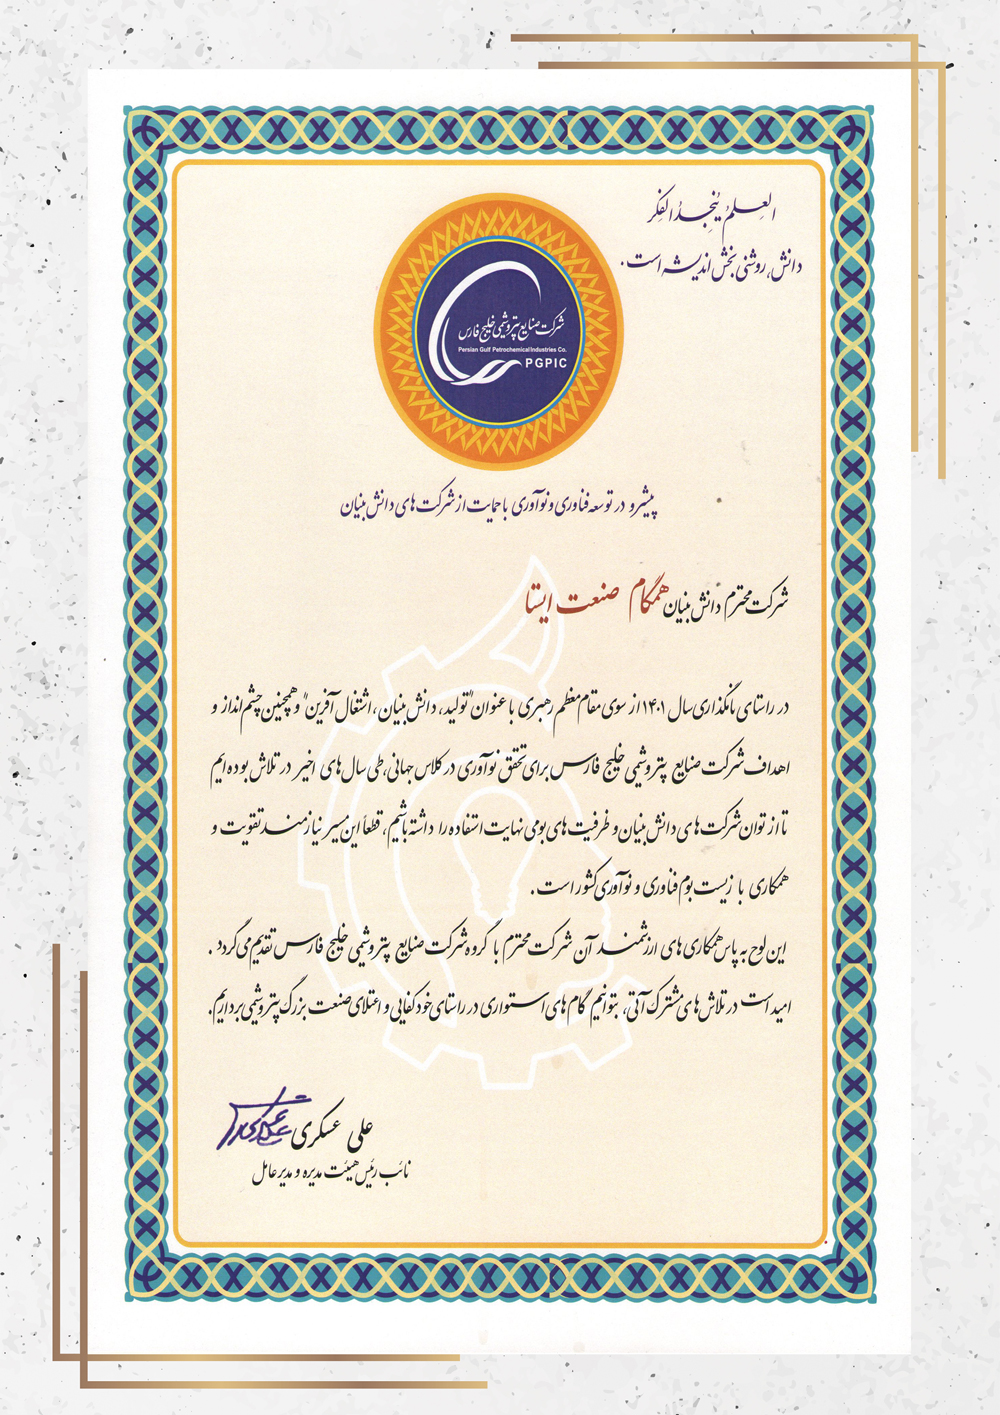 العلم ینجد الفکر
دانش، روشنی بخش اندیشه است.
شرکت صنایع پتروشیمی خلیج فارس
Persian Gulf Petrochemical Industries Co.
PGPIC
پیشرو در توسعه فناوری و نوآوری با حمایت از شرکت های دانش بنیان
شرکت محترم دانش بنیان همگام صنعت ایستا
در راستای نامگذاری سال ۱۴۰۱ از سوی مقام معظم رهبری با عنوان "تولید، دانش بنیان، اشتغال آفرین" و همچنین چشم انداز و
اهداف شرکت صنایع پتروشیمی خلیج فارس برای تحقق نوآوری در کلاس جهانی، طی سال های اخیر در تلاش بوده ایم
تا از توان شرکت های دانش بنیان و ظرفیت های بومی نهایت استفاده را داشته باشیم، قطعاً این مسیر نیازمند تقویت و
همکاری با زیست بوم فناوری و نوآوری کشور است.
این لوح به پاس همکاری های ارزشمند آن شرکت محترم با گروه شرکت صنایع پتروشیمی خلیج فارس تقدیم می گردد.
امید است در تلاش های مشترک آتی، بتوانیم گام های استواری در راستای خودکفایی و اعتلای صنعت بزرگ پتروشیمی برداریم.
علی عسکری
نائب رئیس هیئت مدیره و مدیر عامل